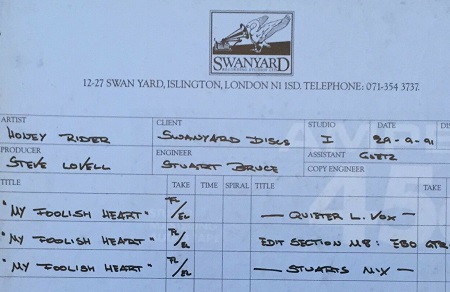 SWANYARD
RECORDING STUDIOS LTD
12-27 SWAN YARD, ISLINGTON, LONDON N1 1SD. TELEPHONE: 071-354 3737.
ARTIST CLIENT STUDIO DATE
HONEY RIDER SWANYARD DISCS I 29-9-91
PRODUCER ENGINEER ASSISTANT GOETZ
STEVE LOVELL STUART BRUCE COPY ENGINEER
TITLE TAKE TIME SPIRAL TITLE TAKE
"MY FOOLISH HEART" FL/EL — QUIETER L. VOX —
"MY FOOLISH HEART" FL/EL EDIT SECTION M8: EBO GTR
"MY FOOLISH HEART" FL/EL — STUARTS MIX —